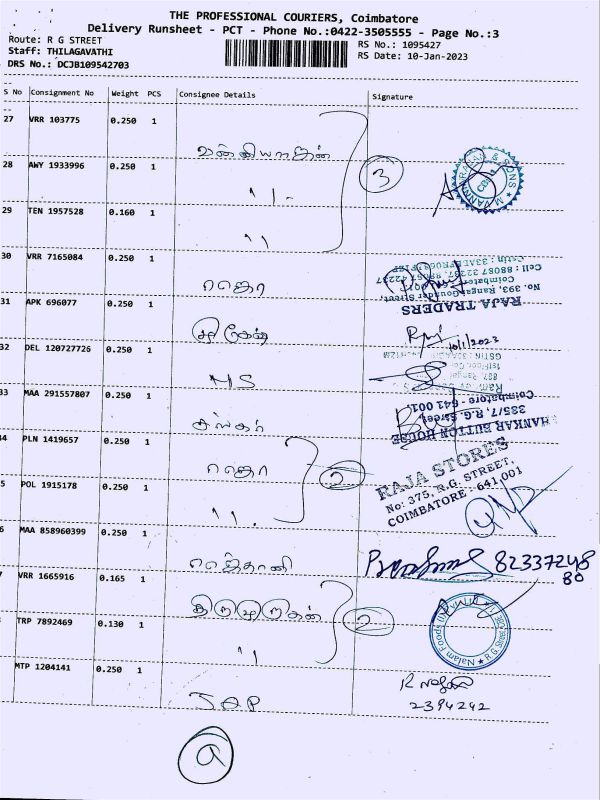 THE PROFESSIONAL COURIERS, Coimbatore
Delivery Runsheet - PCT - Phone No.:0422-3505555 - Page No.:3
Route: R G STREET
Staff: THILAGAVATHI
DRS No.: DCJB109542703
RS No.: 1095427
RS Date: 10-Jan-2023
S No Consignment No Weight PCS Consignee Details Signature
27 VRR 103775 0.250 1
28 AWY 1933996 0.250 1 11 -
3
29 TEN 1957528 0.160 1 11
30 VRR 7165084 0.250 1 ராஜா
RAJA TRADERS
No. 393, Rangai Gounder Street,
Coimbatore
31 APK 696077 0.250 1
10/1/2023
32 DEL 120727726 0.250 1 MS
33 MAA 291557807 0.250 1
HANKAR BUTTON HOUSE
385/7, R.G. Street
Coimbatore - 641 001
4 PLN 1419657 0.250 1 ராஜா
2
RAJA STORES
No: 375, R.G. STREET,
COIMBATORE - 641 001
5 POL 1915178 0.250 1 11 .
6 MAA 858960399 0.250 1
82337248
80
7 VRR 1665916 0.165 1
2
8 TRP 7892469 0.130 1 11
MTP 1204141 0.250 1 JAP
2394242